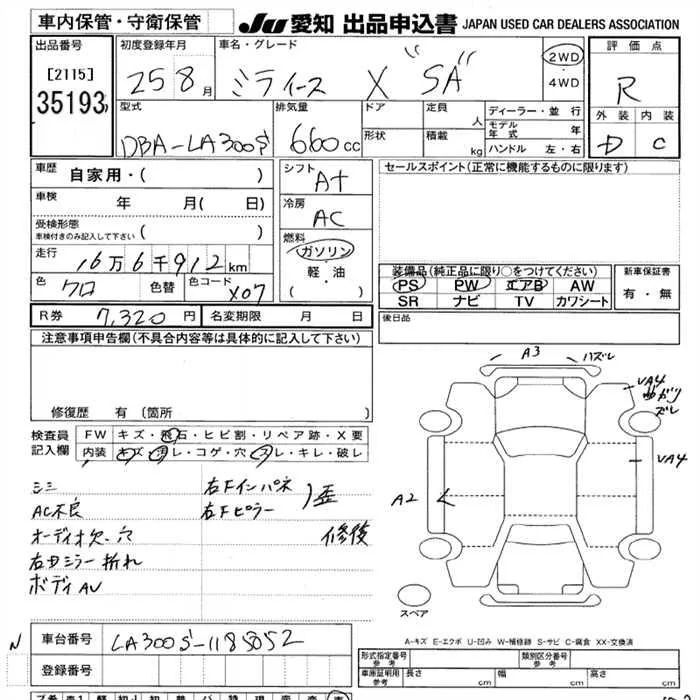 車内保管・守衛保管 JU 愛知 出品申込書 JAPAN USED CAR DEALERS ASSOCIATION
出品番号
[2115]
35193
初度登録年月
25 8月
車名・グレード
ミライース X "SA"
2WD
4WD
評価点
R
外装 内装
D C
型式
DBA-LA300S
排気量
660cc
ドア
形状
定員 人
積載 kg
ディーラー・並行
モデル年式 年
ハンドル 左・右
車歴
自家用・( )
車検 年 月( 日)
受検形態
車検付きのみ記入して下さい ( )
走行 16万6千912km
色 クロ 色替 色コード X07
シフト
AT
冷房
AC
燃料
ガソリン
軽・油
( )
セールスポイント(正常に機能するものに限ります)
装備品(純正品に限り○をつけてください)
PS PW エアB AW
SR ナビ TV カワシート
新車保証書
有・無
R券 7,320円 名変期限 月 日
後日品
注意事項申告欄(不具合内容等は具体的に記入して下さい)
修復歴 有(箇所
検査員記入欄
FW キズ・飛石・ヒビ割・リペア跡・X要
内装 キズ・汚レ・コゲ・穴・スレ・キレ・破レ
シミ
AC不良
オーディオ欠・穴
右ドミラー折れ
ボディAU
右Fインパネ
右Fピラー
歪
修後
A3 ハズレ
UA4
曲がり
ズレ
UA4
A2
スペア
A-キズ E-エクボ U-凹み W-補修跡 S-サビ C-腐食 XX-交換済
N
車台番号 LA300S-1185052
登録番号
形式指定番号
参考
類別区分番号
参考
車庫証明用
参考
長さ cm 幅 cm 高さ cm